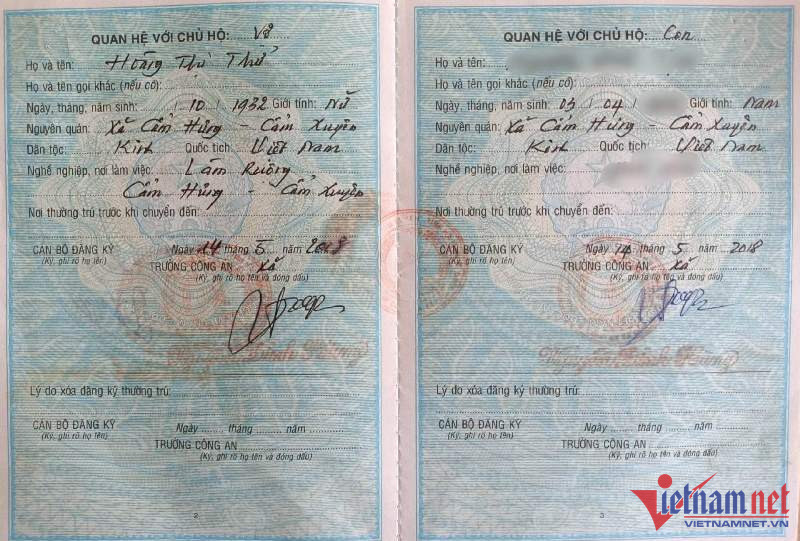 QUAN HỆ VỚI CHỦ HỘ: Vợ
Họ và tên: Hoàng Thị Thử
Họ và tên gọi khác (nếu có):
Ngày, tháng, năm sinh: / 10 / 1932 Giới tính: Nữ
Nguyên quán: Xã Cẩm Hưng - Cẩm Xuyên
Dân tộc: Kinh Quốc tịch: Việt Nam
Nghề nghiệp, nơi làm việc: Làm Ruộng
Cẩm Hưng - Cẩm Xuyên
Nơi thường trú trước khi chuyển đến:
CÁN BỘ ĐĂNG KÝ
(Ký, ghi rõ họ tên)
Ngày 14 tháng 5 năm 2018
TRƯỞNG CÔNG AN xã
(Ký, ghi rõ họ tên và đóng dấu)
Lý do xóa đăng ký thường trú:
CÁN BỘ ĐĂNG KÝ
(Ký, ghi rõ họ tên)
Ngày ...... tháng ...... năm ......
TRƯỞNG CÔNG AN
(Ký, ghi rõ họ tên và đóng dấu)
2
QUAN HỆ VỚI CHỦ HỘ: Con
Họ và tên:
Họ và tên gọi khác (nếu có):
Ngày, tháng, năm sinh: 03 / 04 / Giới tính: Nam
Nguyên quán: Xã Cẩm Hưng - Cẩm Xuyên
Dân tộc: Kinh Quốc tịch: Việt Nam
Nghề nghiệp, nơi làm việc:
Nơi thường trú trước khi chuyển đến:
CÁN BỘ ĐĂNG KÝ
(Ký, ghi rõ họ tên)
Ngày 14 tháng 5 năm 2018
TRƯỞNG CÔNG AN xã
(Ký, ghi rõ họ tên và đóng dấu)
Lý do xóa đăng ký thường trú:
CÁN BỘ ĐĂNG KÝ
(Ký, ghi rõ họ tên)
Ngày ...... tháng ...... năm ......
TRƯỞNG CÔNG AN
(Ký, ghi rõ họ tên và đóng dấu)
3
Vietnamnet
VIETNAMNET.VN